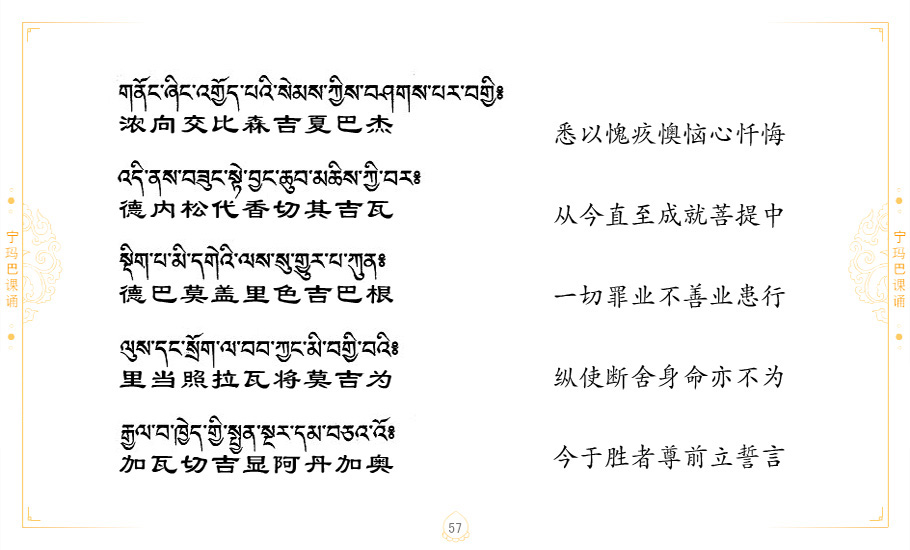 གནོང་ཞིང་འགྱོད་པའི་སེམས་ཀྱིས་བཤགས་པར་བགྱི༔
浓向交比森吉夏巴杰
悉以愧疚懊恼心忏悔
འདི་ནས་བཟུང་སྟེ་བྱང་ཆུབ་མཆིས་ཀྱི་བར༔
德内松代香切其吉瓦
从今直至成就菩提中
སྡིག་པ་མི་དགེའི་ལས་སུ་གྱུར་པ་ཀུན༔
德巴莫盖里色吉巴根
一切罪业不善业患行
ལུས་དང་སྲོག་ལ་བབ་ཀྱང་མི་བགྱི་བའི༔
里当照拉瓦将莫吉为
纵使断舍身命亦不为
རྒྱལ་བ་ཁྱེད་ཀྱི་སྤྱན་སྔར་དམ་བཅའ་འོ༔
加瓦切吉显阿丹加奥
今于胜者尊前立誓言
宁玛巴课诵
宁玛巴课诵
57